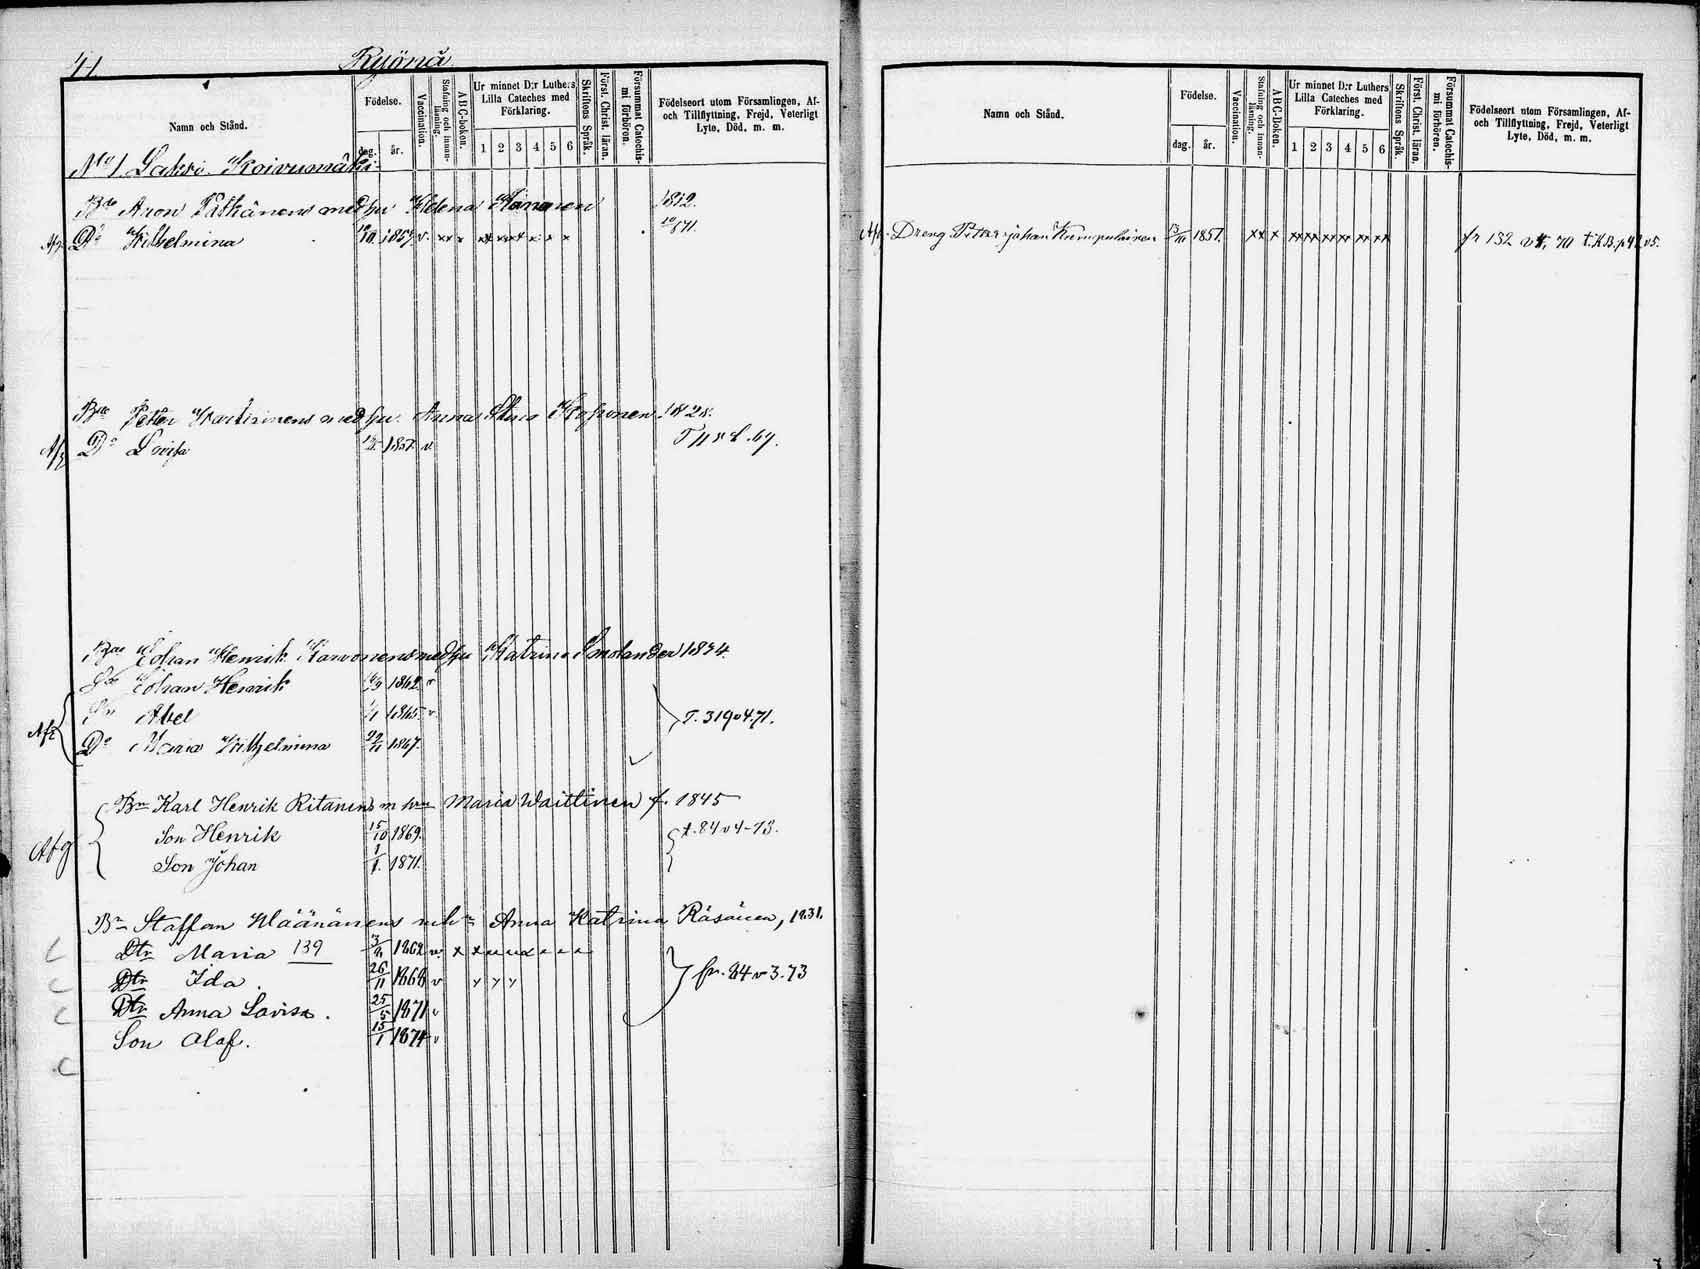 41 Ryönä
Namn och Stånd.
Födelse.
dag.
år.
Vaccination.
Stafning och innanläsning.
ABC-boken.
Ur minnet D:r Luthers Lilla Cateches med Förklaring.
1 2 3 4 5 6
Skriftens Språk.
Först. Christ. läran.
Försummat Catechismi förhören.
Födelseort utom Församlingen, Af- och Tillflyttning, Frejd, Veterligt Lyte, Död, m. m.
No 1 Sakri Koivumäki
Bde Aron med hu Helena 1812.
Afg Dr Wilhelmina 1857 v. xx x x x x
Bde Petter med hu Anna Stina 1828.
Afg Dr Lovisa 1857. v.
Bde Johan Henrik Karvonens med hu Katrina Smolander 1834.
Sn Johan Henrik 1862 v
Sn Abel 1/1 1865 v.
T. 319 v 4. 71.
Afg Dr Maria Wilhelmina 1867.
Bn Karl Henrik Ritanens m hru Maria Waittinen f. 1845
Son Henrik 15/10 1869.
t. 84 v 4-73.
Afg Son Johan 1/1 1871.
Bn Staffan Määnänens mh Anna Katrina Räsänen, 1831.
Dtr Maria 139 1862 v.
Dtr Ida. 26/11 1868 v
fr. 84 v 3. 73
Dtr Anna Lovisa. 25/5 1871 v
Son Olaf. 15/1 1874 v
Namn och Stånd.
Födelse.
dag.
år.
Vaccination.
Stafning och innanläsning.
ABC-Boken.
Ur minnet D:r Luthers Lilla Cateches med Förklaring.
1 2 3 4 5 6
Skriftens Språk.
Först. Christ. läran.
Försummat Catechismi förhören.
Födelseort utom Församlingen, Af- och Tillflyttning, Frejd, Veterligt Lyte, Död, m. m.
Afg Dreng Petter Johan Kumpulainen 1851. xx x xx xx xx xx xx xx fr 132 70 t. K.B. p 42 v 5.